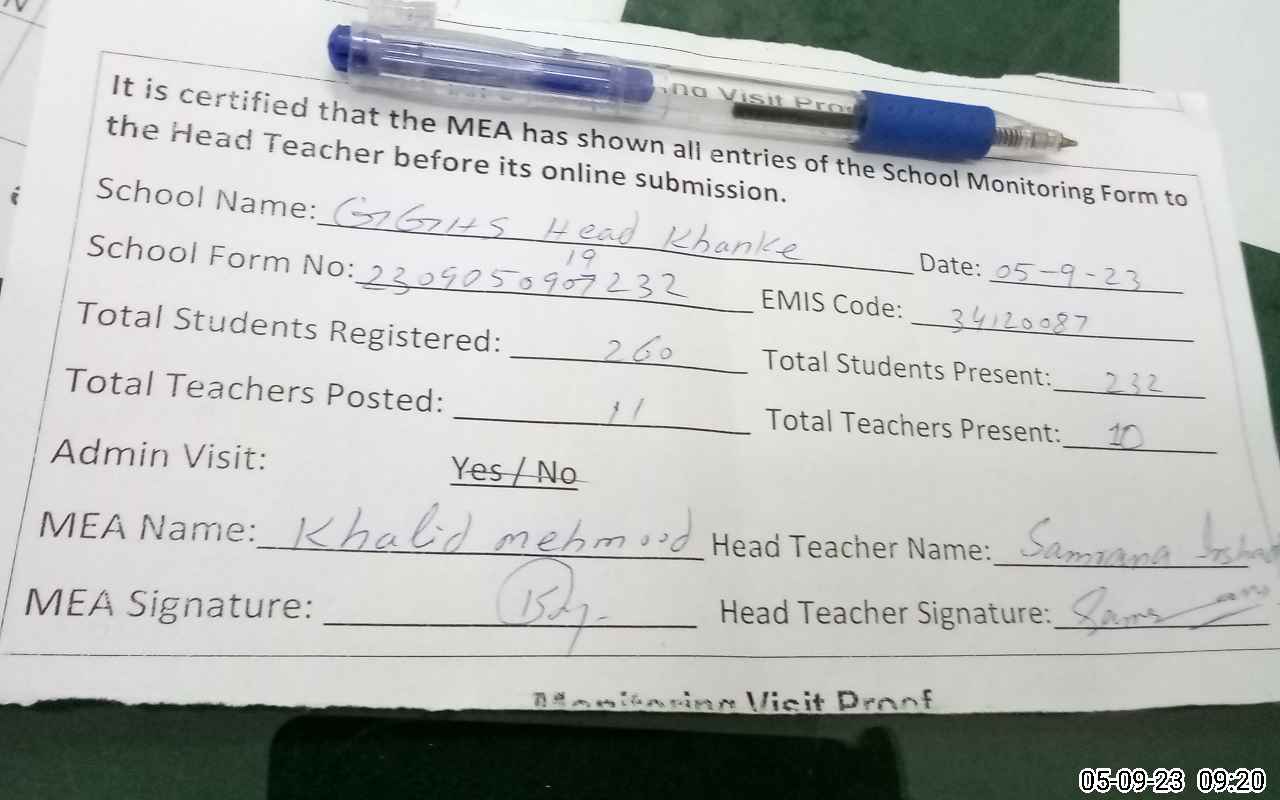 ng Visit Proo
It is certified that the MEA has shown all entries of the School Monitoring Form to
the Head Teacher before its online submission.
School Name: GGHS Head Khanke Date: 05-9-23
19
School Form No: 2309050907232 EMIS Code: 34120087
Total Students Registered: 260 Total Students Present: 232
Total Teachers Posted: 11 Total Teachers Present: 10
Admin Visit: Yes / No
MEA Name: Khalid mehmood Head Teacher Name:
MEA Signature: Head Teacher Signature:
Monitoring Visit Proof
05-09-23 09:20